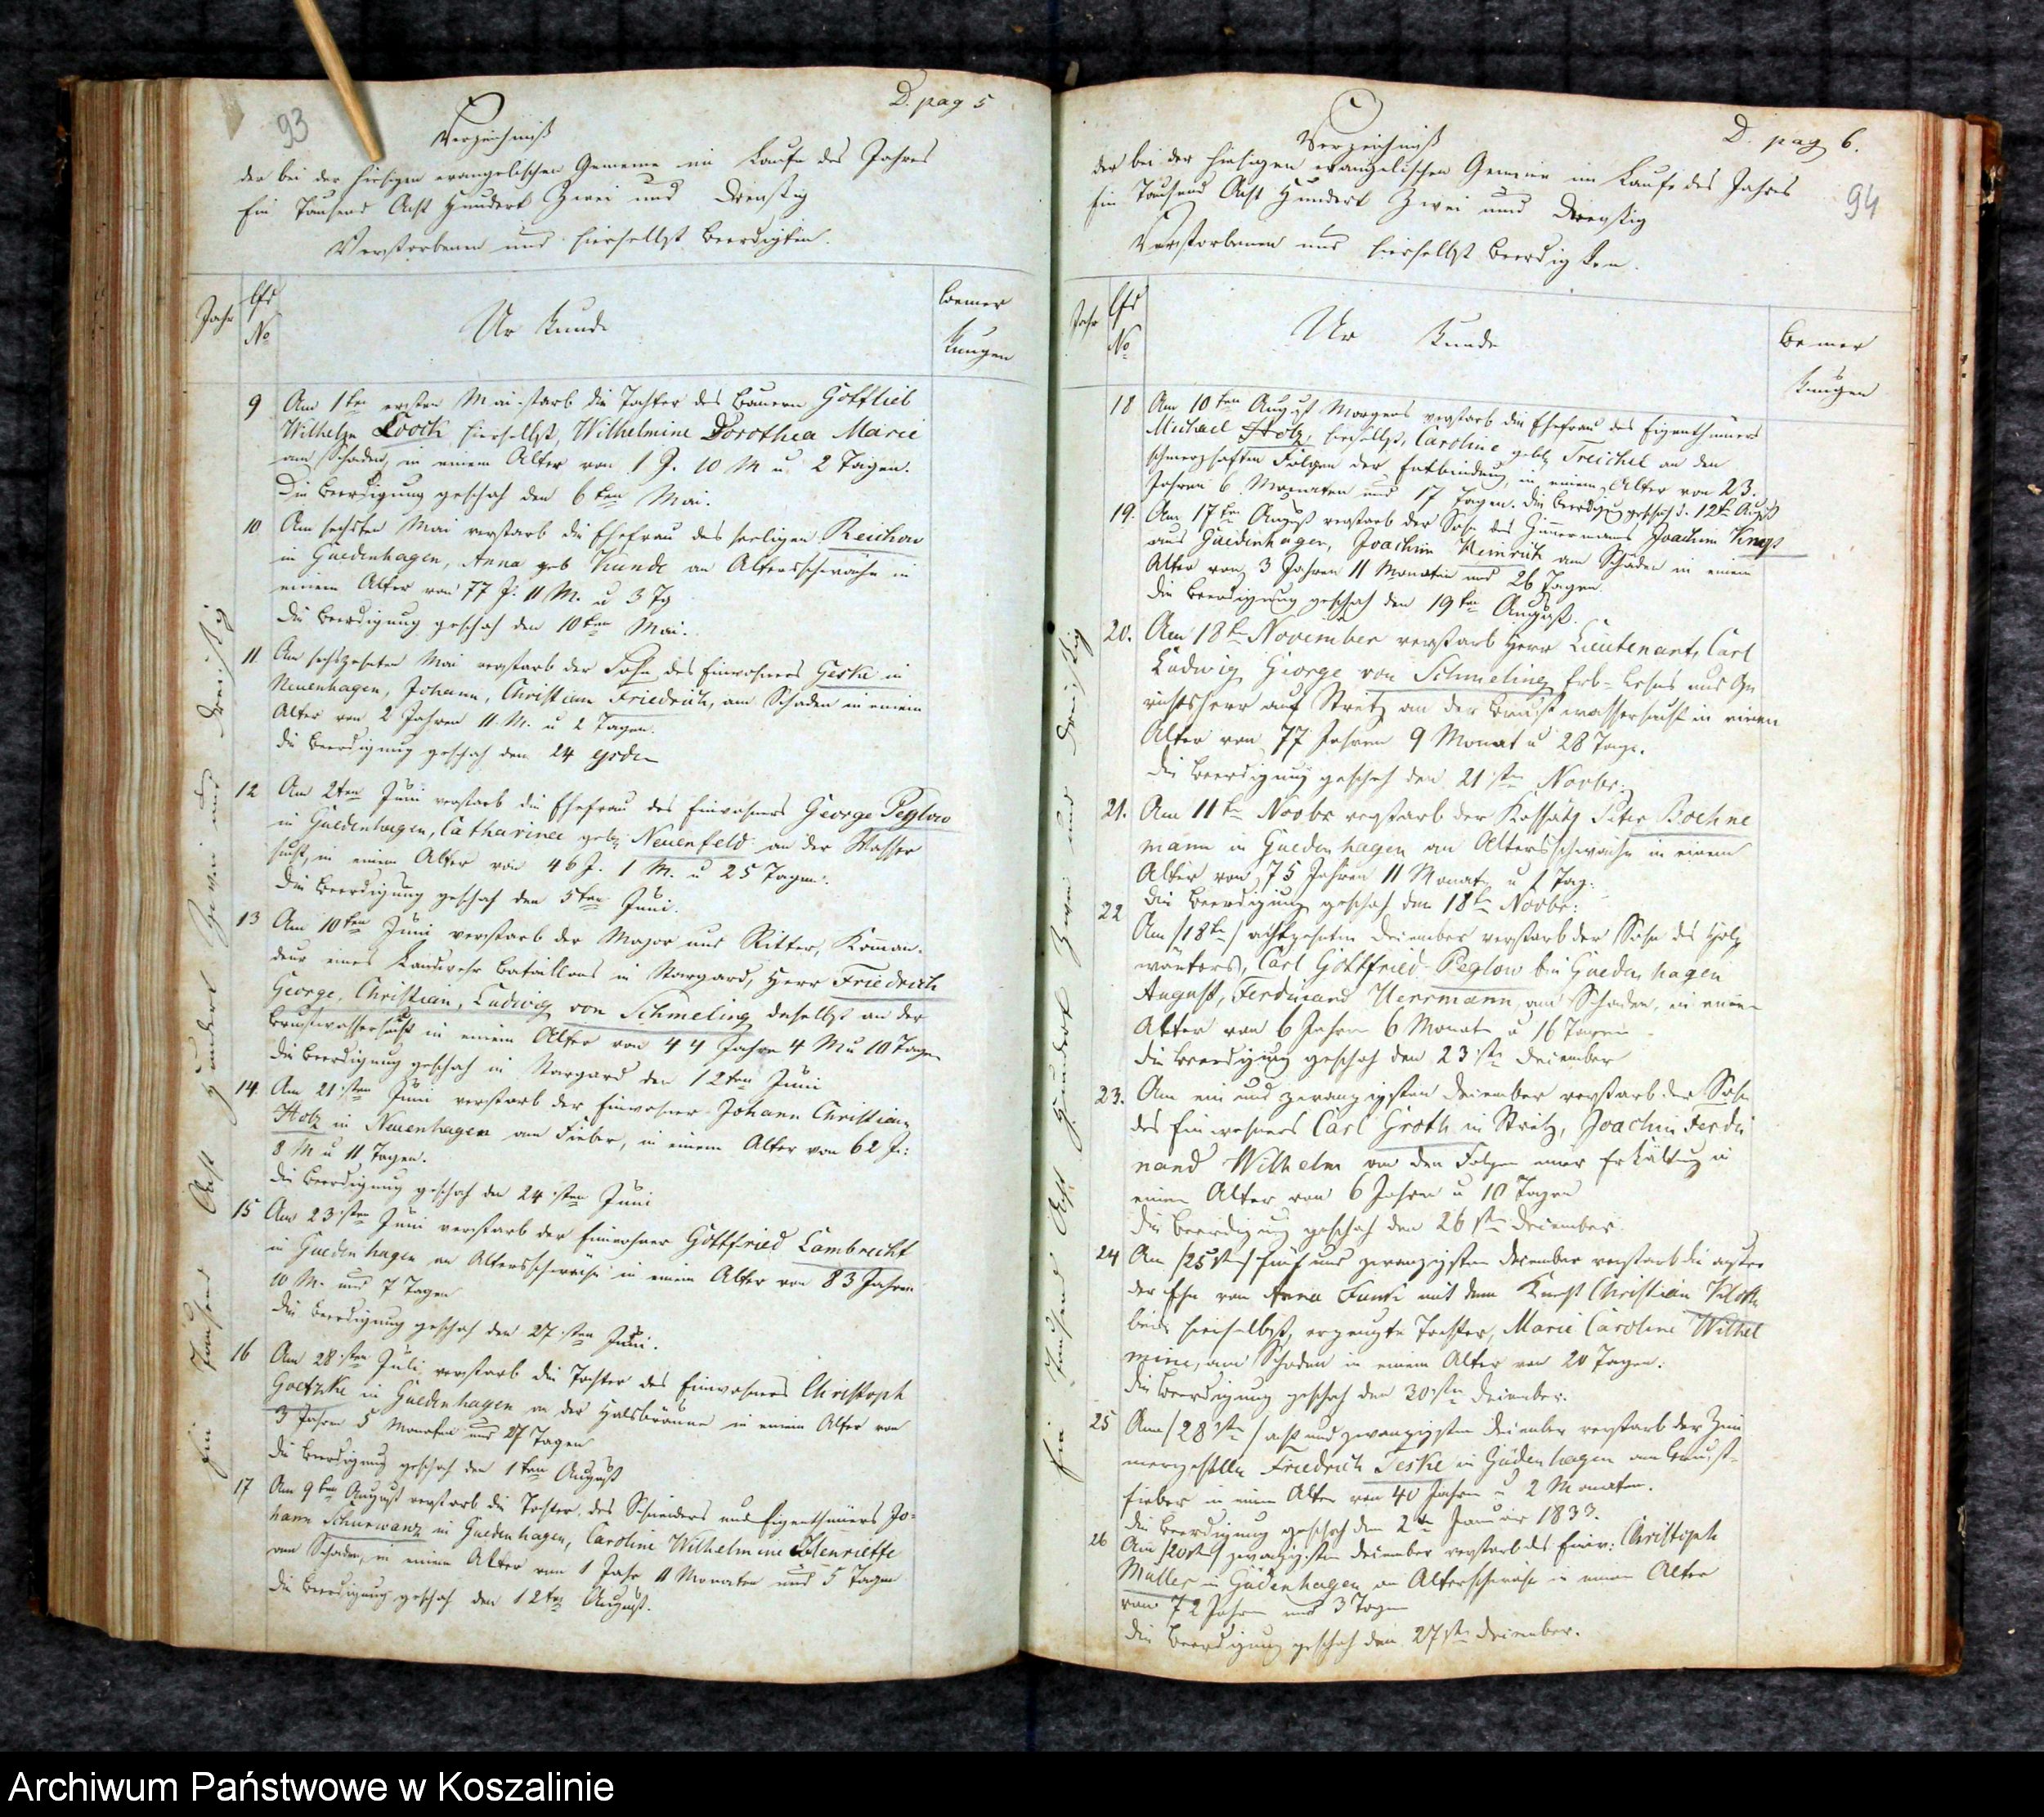 93
D. pag 5
Verzeichniß
der bei der hiesigen evangelischen Gemeine im Laufe des Jahres
Ein Tausend Acht Hundert Zwei und Dreißig
Verstorbenen und hierselbst Beerdigten.
Jahr
lfd
No
Urkunde
Bemer
kungen
Ein Tausend Acht Hundert Zwei und Dreißig
9 Am 1ten ersten Mai starb die Tochter des Bauern Gottlieb
Wilhelm Loock hierselbst, Wilhelmine Dorothea Marie
am Schaden, in einem Alter von 1 J. 10 M u. 2 Tagen.
Die Beerdigung geschah den 6ten Mai.
10 Am sechsten Mai verstarb die Ehefrau des seeligen Reichow
in Guedenhagen, Anna geb Kunde an Altersschwäche in
einem Alter von 77 J. 11 M. u 3 Tg
Die Beerdigung geschah den 10ten Mai.
11 Am sechszehnten Mai verstarb der Sohn des Einwohners Geske in
Neuenhagen, Johann, Christian Friedrich, am Schaden in einem
Alter von 2 Jahren 11 M. u 2 Tagen.
die Beerdigung geschah den 24
12 Am 2ten Juni verstarb die Ehefrau des Einwohners George Peglow
in Guedenhagen, Catharinea geb: Neuenfeld an der Wasser
sucht, in einem Alter von 46 J. 1 M. u 25 Tagen.
Die Beerdigung geschah den 5ten Juni.
13 Am 10ten Juni verstarb der Major und Ritter, Koman-
deur eines Landwehr Bataillons in Stargard, Herr Friedrich
George, Christian, Ludwig von Schmeling daselbst an der
Brustwassersucht in einem Alter von 44 Jahre 4 M u 10 Tagen
die Beerdigung geschah in Stargard den 12ten Juni
14. Am 21sten Juni verstarb der Einwohner Johann Christian
Holz in Neuenhagen am Fieber, in einem Alter von 62 J:
8 M u 11 Tagen.
die Beerdigung geschah den 24sten Juni
15 Am 23sten Juni verstarb der Einwohner Gottfried Lambrecht
in Guedenhagen an Altersschwäche in einem Alter von 83 Jahren
10 M. und 7 Tagen
Die Beerdigung geschah den 27sten Juni.
16 Am 28sten Juli verstarb die Tochter des Einwohners Christoph
Goetzke in Guedenhagen an der Halsbräune in einem Alter von
3 Jahren 5 Monaten und 27 Tagen
die Beerdigung geschah den 1ten August
17 Am 9ten August verstarb die Tochter des Schneiders und Eigenthümers Jo-
hann Schurwanz in Guedenhagen, Caroline Wilhelmine Henriette
am Schaden, in einem Alter von 1 Jahr 11 Monaten und 5 Tagen
die Beerdigung geschah den 12ten August.
D. pag 6.
94
Verzeichniß
der bei der hiesigen evangelischen Gemeine im Laufe des Jahres
Ein Tausend Acht Hundert Zwei und Dreißig
Verstorbenen und hierselbst Beerdigten.
Jahr
lfd
No
Urkunde
Bemer
kungen
Ein Tausend Acht Hundert Zwei und Dreißig
18 Am 10ten August Morgens verstarb die Ehefrau des Eigenthümers
Michael Holz, hierselbst, Caroline geb: Treichel an den
schmerzhaften Folgen der Entbindung, in einem Alter von 23.
Jahren 6 Monaten und 17 Tagen. die Beerdigung geschah d. 12t August
19. Am 17ten August verstarb der Sohn des Zimmermanns Joachim
aus Guedenhagen, Joachim Heinrich am Schaden in einem
Alter von 3 Jahren 11 Monaten und 26 Tagen.
die Beerdigung geschah den 19ten August.
20. Am 18t November verstarb Herr Lieutenant, Carl
Ludwig George von Schmeling Erb- Lehns und Ge
richtsherr auf Streitz an der Brustwassersucht in einem
Alter von 77 Jahren 9 Monat u 28 Tage.
die Beerdigung geschah den 21sten Novbr:
21. Am 11t Novbr verstarb der Kossäth Peter Boehne
mann in Guedenhagen an Altersschwäche in einem
Alter von 75 Jahren 11 Monate u 1 Tag.
die Beerdigung geschah den 18t Novbr:
22 Am /18t/ achtzehnten December verstarb der Sohn des Holz
wärters, Carl Gottfried Peglow bei Guedenhagen
August, Ferdinand Herrmann, am Schaden, in einem
Alter von 6 Jahren 6 Monate u 16 Tagen
die Beerdigung geschah den 23ste December
23. Am ein und zwanzigsten December verstarb der Sohn
des Einwohners Carl Groth in Streitz, Joachim Ferdi
nand Wilhelm an den Folgen einer Erkältung in
einem Alter von 6 Jahren u 10 Tagen
die Beerdigung geschah den 26ste December
24 Am /25ste/ fünf und zwanzigsten December verstarb die außer
der Ehe von Anna Funk mit dem Knecht Christian
beide hierselbst, erzeugte Tochter, Marie Caroline Wilhel
mine, am Schaden in einem Alter von 20 Tagen.
die Beerdigung geschah den 30ste December.
25 Am /28ste/ acht und zwanzigsten December verstarb der Zim
mergeselle Friedrich Teske in Güdenhagen am Brust-
fieber in einem Alter von 40 Jahren u 2 Monaten.
die Beerdigung geschah den 2te Januar 1833.
26 Am /20ste/ zwanzigsten December verstarb des Einw: Christoph
Müller in Güdenhagen an Altersschwäche in einem Alter
von 72 Jahren und 3 Tagen
die Beerdigung geschah den 27ste December.
Archiwum Państwowe w Koszalinie